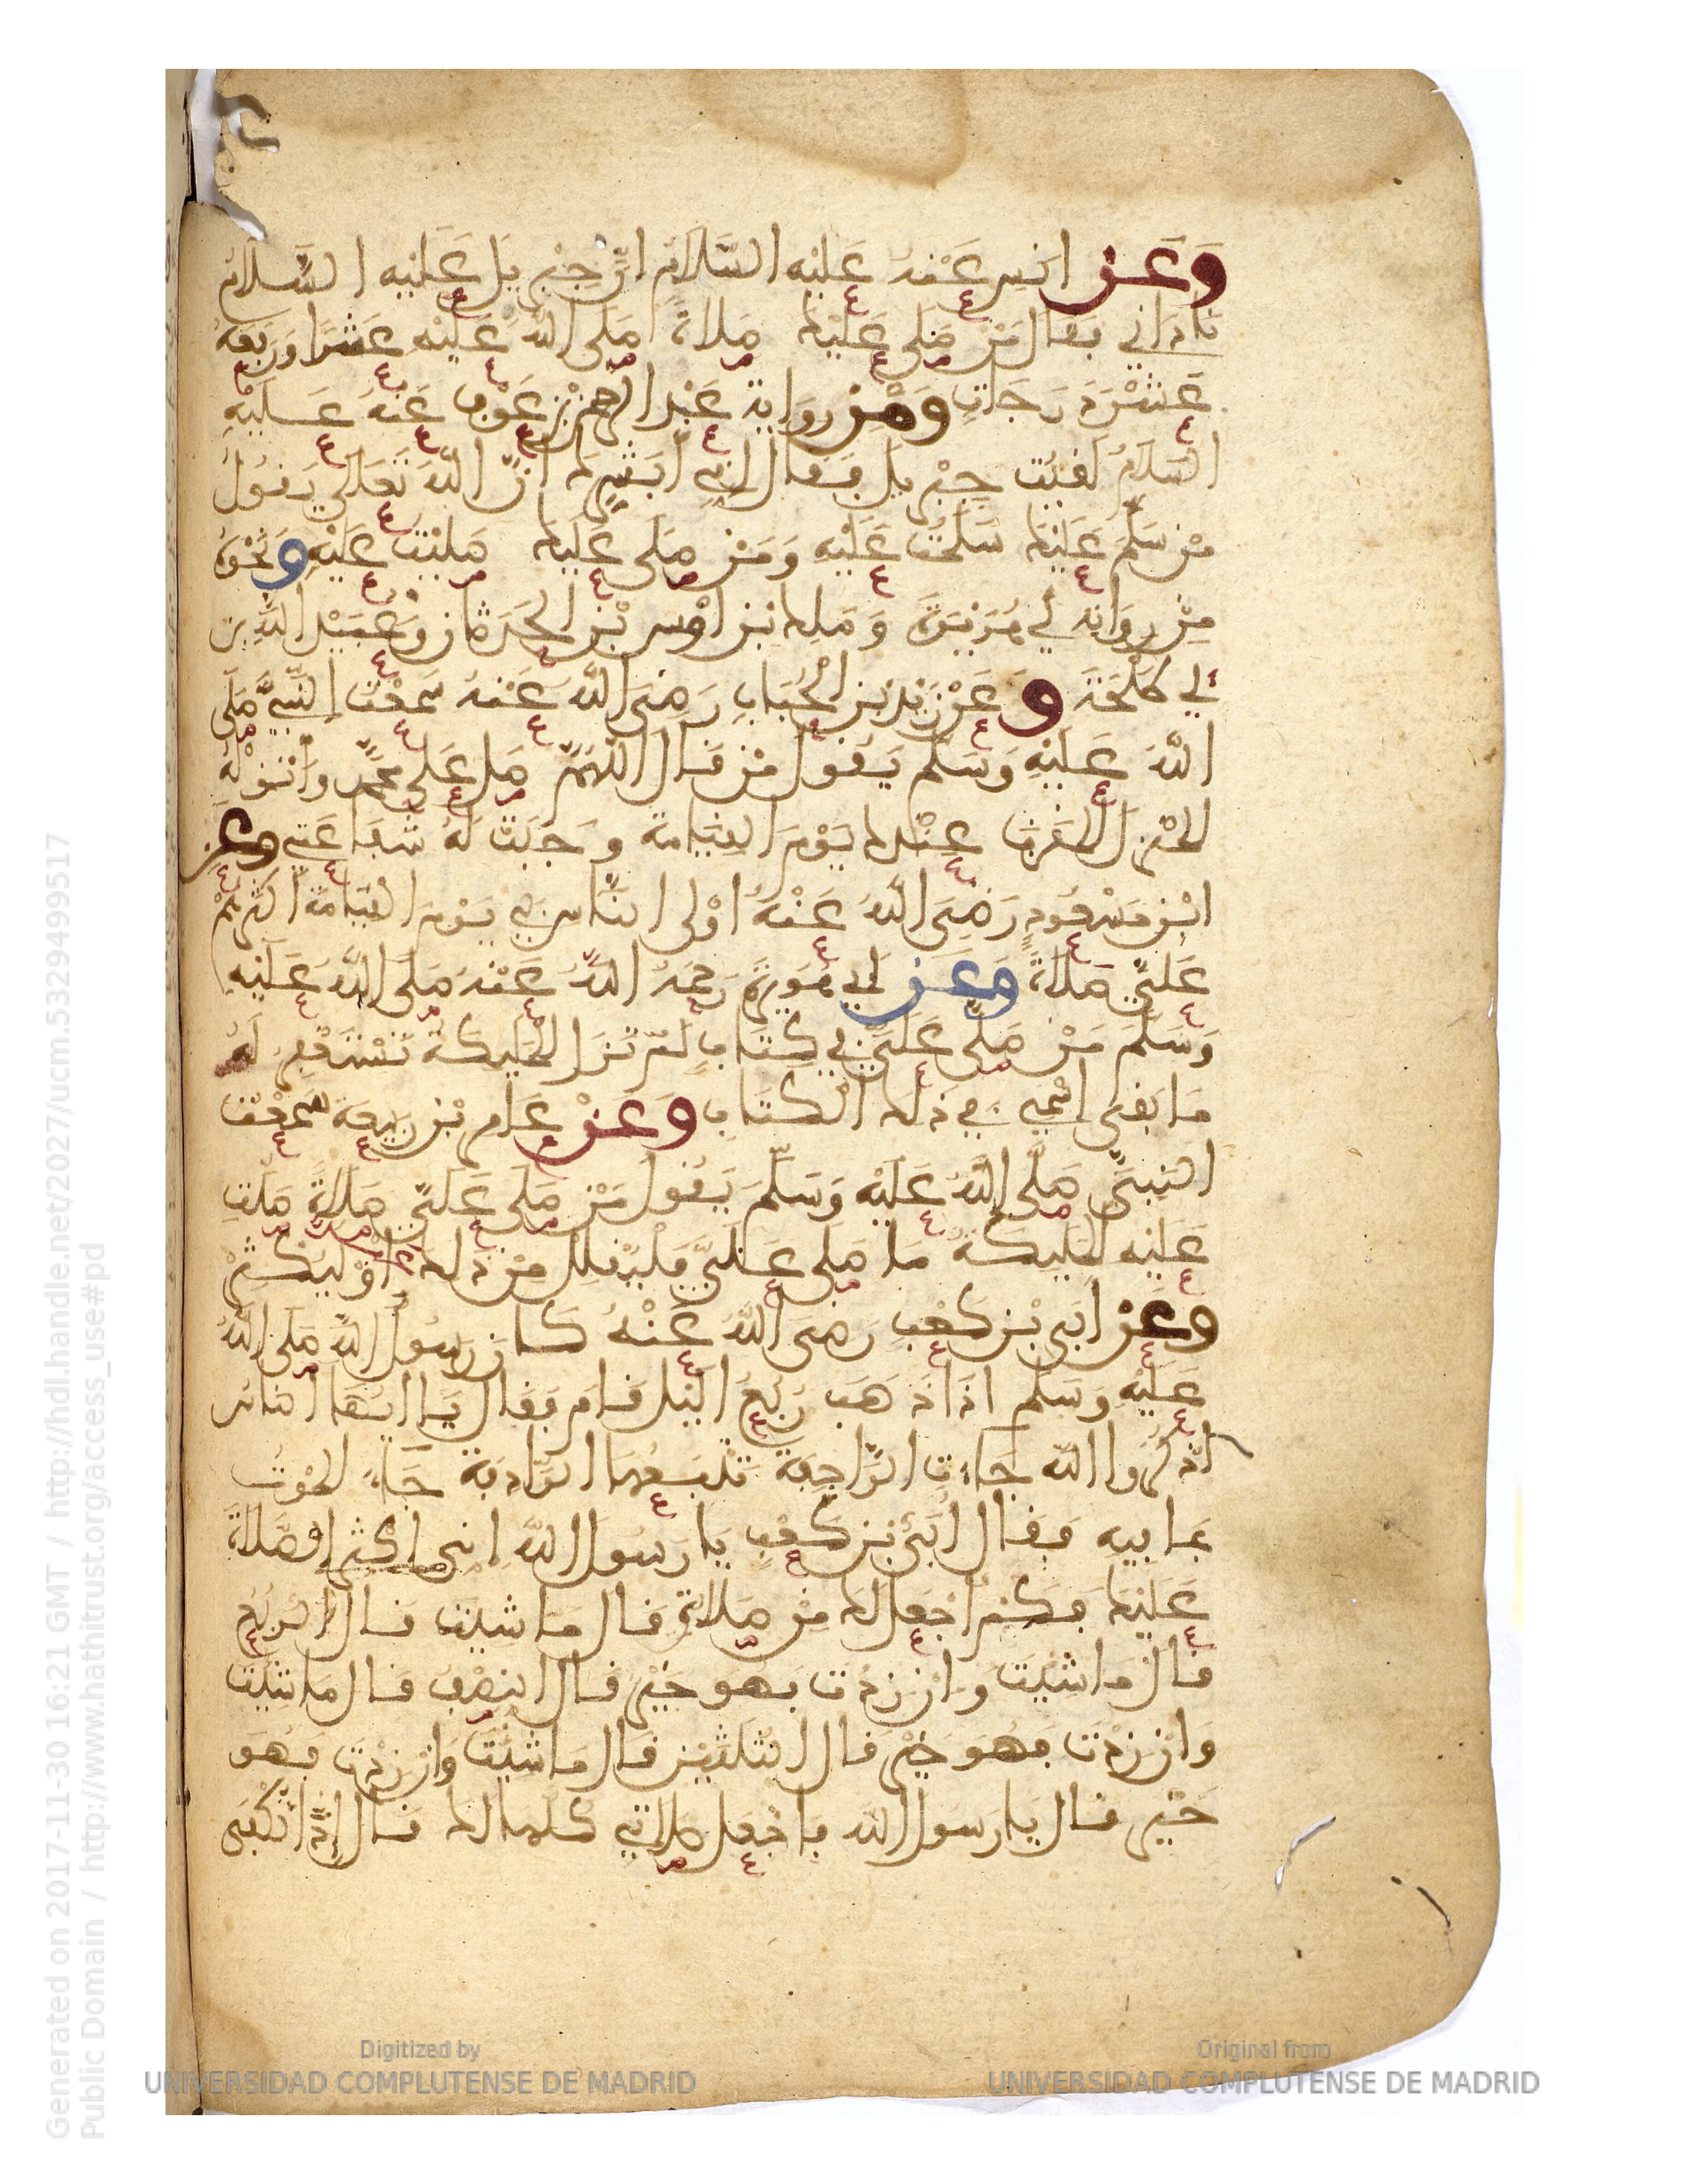 وَعَن انس عَنْهُ عَلَيْهِ السَّلَامُ انّ جِبْرِيلَ عَلَيْهِ السَّلَامُ
نَادَاني فقال مَنْ صَلى عَلَيْكَ صلاةً صَلى اللهُ عَلَيْهِ عَشْرًا وَرَفعَهُ
عَشْرَ دَرَجَاتٍ وَمِن رِوَايةِ عَبْد الرحمن بن عَوْف عَنْهُ عَلَيْهِ
السَّلَامُ لَقِيت جِبْرِيلَ فَقَال لِي اُبَشّرك انّ اللّهَ تَعَالَى يَقُولُ
مَن سَلَّمَ عَلَيْكَ سَلّمْتُ عَلَيْهِ وَمَن صلى عَلَيكَ صَليْت عَلَيْهِ وَنَحْوهُ
مِنْ رِوَاية اَبي هُرَيْرَةَ وَمَلك بْن اَوْس بْن الحَدَثان وَعُبَيْد اللهِ بن
اَبي طَلْحَةَ وَعَنْ زَيْد بْن الحُبَابِ رَضِيَ اللهُ عَنْهُ سَمِعْتُ النَّبِيَّ صَلَى
اللهُ عَلَيْهِ وَسَلَّمَ يَقُول مَن قَال اللّهُمّ صَل عَلى محَمّدٍ وَاَنْزِلْهُ
المَنْزِلَ المُقَرّبَ عِنْدَك يَوْمَ القِيَامَةِ وَجَبَتْ لَهُ شَفَاعَتِي وَعَن
ابْن مَسْعُودٍ رَضِيَ اللّهُ عَنْهُ اَوْلى النَّاسِ بِي يَوْمَ القِيَامَةِ اَكْثَرُهُمْ
عَلَيَّ صَلَاةً وَعَن اَبي هُرَيْرَةَ رَحِمَهُ اللهُ عَنْهُ صَلَّى اللّهُ عَلَيْهِ
وَسَلَّمَ مَنْ صَلَّى عَلَيَّ في كِتَابٍ لَمْ تَزَل المَلَيكةُ تَسْتَغْفِر لَهُ
مَا بَقِيَ اسْمِي في ذَلِك الْكِتَابِ وَعَنْ عَامِر بْن رَبِيعَةَ سَمِعْتُ
النَبِيَّ صَلَّى اللّهُ عَلَيْهِ وَسَلَّمَ يَقُول مَنْ صَلى عَلَيَّ صَلَاةً صَلت
عَلَيْهِ المَلَيكَةُ مَا صَلى عَلَيَّ فَليُقلِلْ مِن ذَلك اَوْ لِيُكْثِرْ
وَعَنْ اُبَي بْن كَعْبٍ رَضِيَ اللهُ عَنْهُ كَان رَسُولُ اللهِ صَلى اللهُ
عَلَيْهِ وَسَلّمَ اذَا ذَهَبَ رُبُعُ الَّيْل قَامَ فَقَال يَا اَيُّهَا الناسُ
اذْكُرُوا اللّهَ جَاءت الرَّاجِفَةُ تَتْبَعُهَا الرَّادِفَة جَاءَ المَوْتُ
بمَا فِيهِ فَقَال اُبَيُّ بْن كَعْبٍ يَا رَسُولَ اللهِ اِني اُكْثِر الصَّلَاةَ
عَلَيْكَ فكَم اَجْعَل لَكَ مِنْ صَلَاتي قَال مَا شيتَ قَال الرّبُعَ
قَال مَا شيتَ وَان زدْتَ فَهو خَيْر قَال النّصْفَ قَال مَا شيتَ
وَان زدْتَ فَهُوَ خَيْر قَال الثلثَيْن قَال مَا شيتَ وَان زدْتَ فَهو
خَيْر قَال يَا رَسُولَ اللهِ فَاَجْعَل صَلاتِي كُلهَا لَكَ قَال اِذًا تُكْفَى
Generated on 2017-11-30 16:21 GMT / http://hdl.handle.net/2027/ucm.5329499517
Public Domain / http://www.hathitrust.org/access_use#pd
Digitized by
UNIVERSIDAD COMPLUTENSE DE MADRID
Original from
UNIVERSIDAD COMPLUTENSE DE MADRID